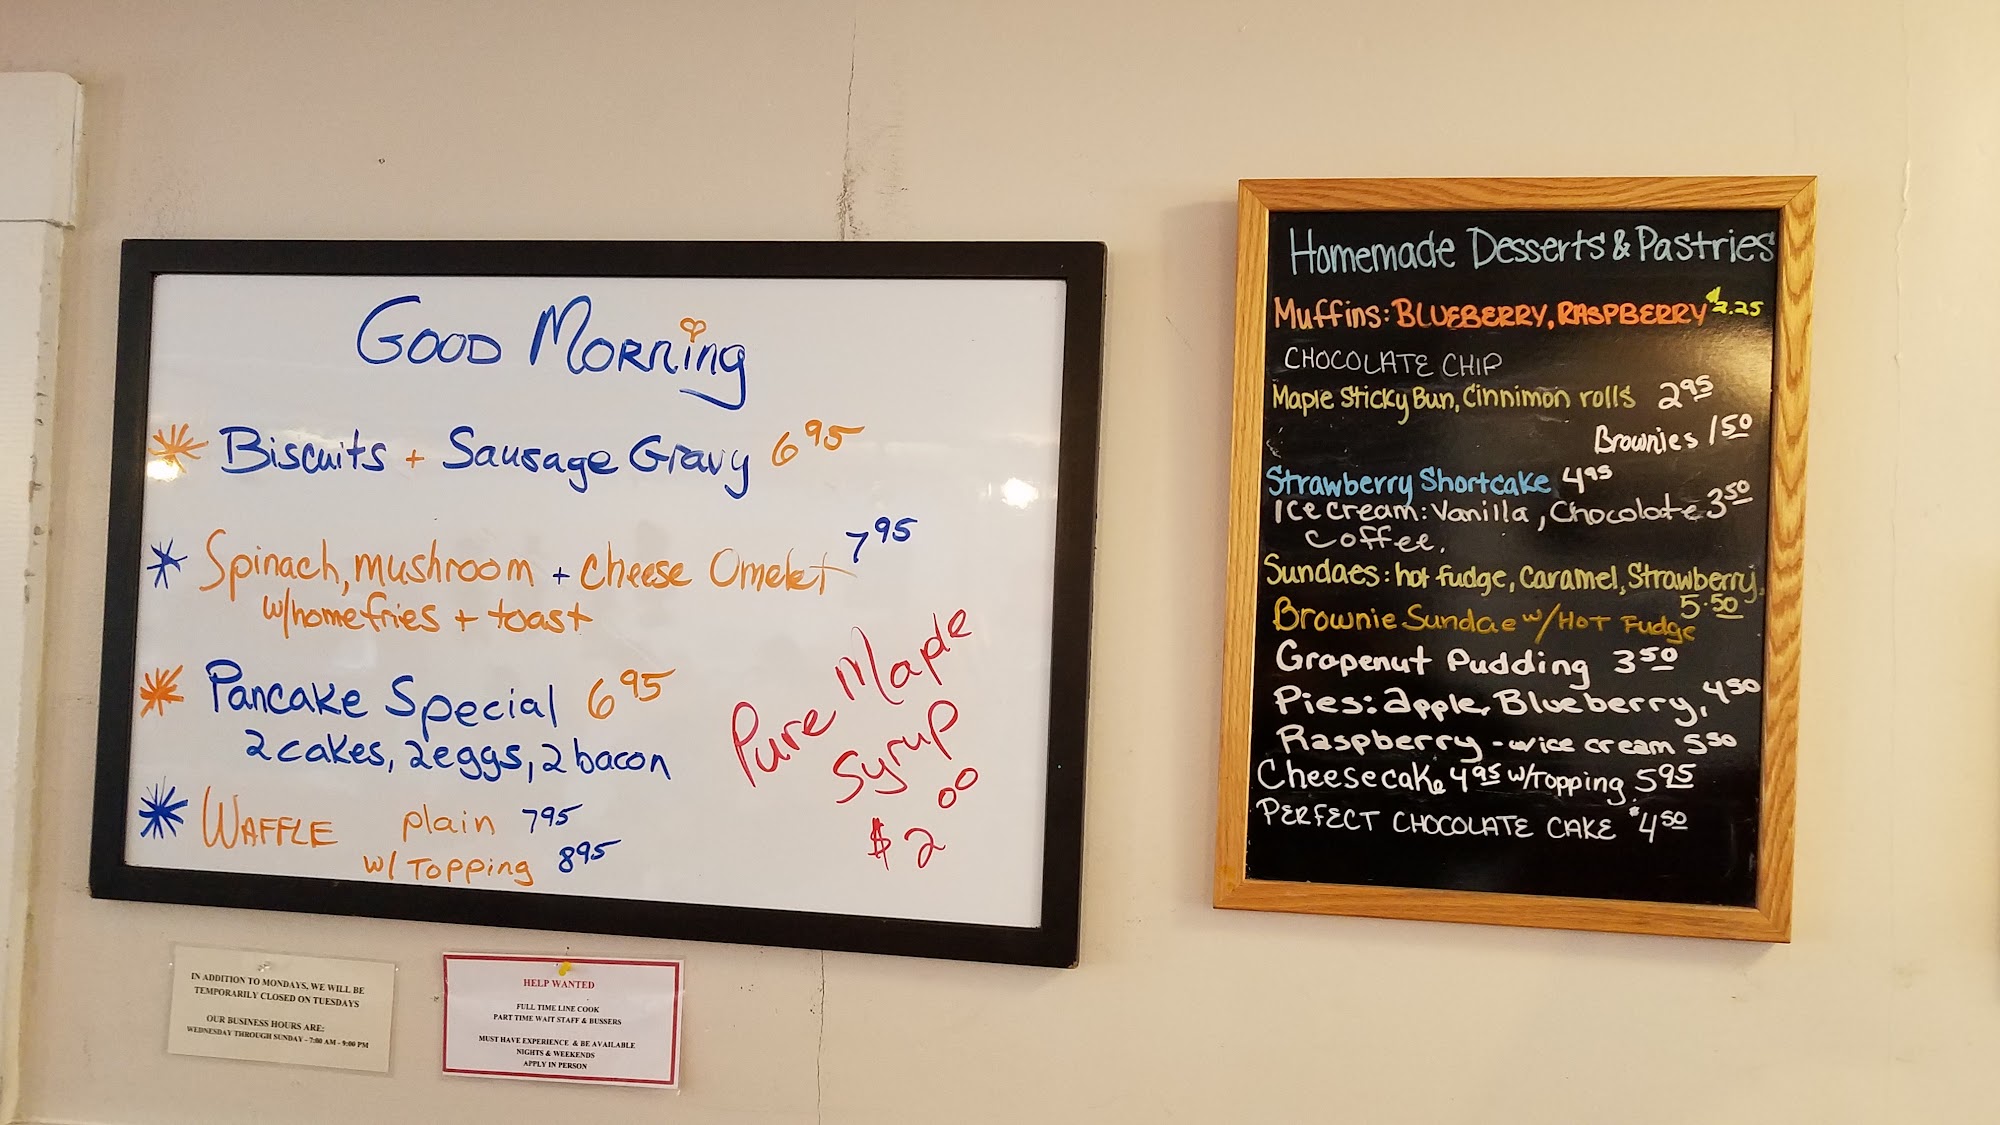 Good Morning
Biscuits + Sausage Gravy 6 95
Spinach, mushroom + Cheese Omelet 7 95
w/homefries + toast
Pancake Special 6 95
2 cakes, 2 eggs, 2 bacon
WAFFLE plain 7 95
w/ Topping 8 95
Pure Maple
Syrup
$2 00
IN ADDITION TO MONDAYS, WE WILL BE
TEMPORARILY CLOSED ON TUESDAYS
OUR BUSINESS HOURS ARE:
WEDNESDAY THROUGH SUNDAY - 7:00 AM - 9:00 PM
HELP WANTED
FULL TIME LINE COOK
PART TIME WAIT STAFF & BUSSERS
MUST HAVE EXPERIENCE & BE AVAILABLE
NIGHTS & WEEKENDS
APPLY IN PERSON
Homemade Desserts & Pastries
Muffins: BLUEBERRY, RASPBERRY $2.25
CHOCOLATE CHIP
Maple Sticky Bun, Cinnimon rolls 2 95
Brownies 1 50
Strawberry Shortcake 4 95
Ice cream: Vanilla, Chocolate 3 50
Coffee.
Sundaes: hot fudge, Caramel, Strawberry,
5.50
Brownie Sundae w/Hot Fudge
Grapenut Pudding 3 50
Pies: apple, Blueberry, 4 50
Raspberry - w/ice cream 5 50
Cheesecake 4 95 w/Topping 5 95
PERFECT CHOCOLATE CAKE $4 50